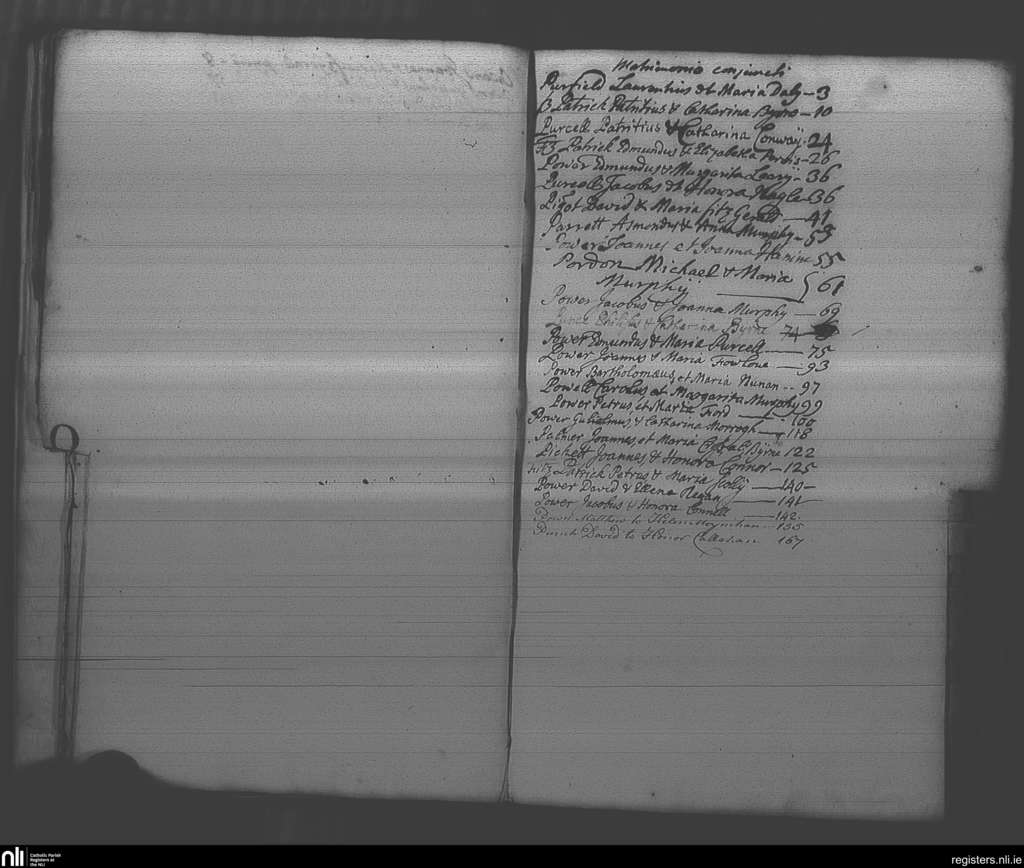 Matrimonio conjuncti
Purfield Laurentius et Maria Daly – 3
Patrick Patritius & Catharina Byrne – 10
Purcell Patritius & Catharina Conway – 24
Patrick Edmundus & Elizabetha – 26
Power Edmundus & Margarita Leary – 36
Purcell Jacobus et Honora Nagle – 36
Pigot David & Maria fitz Gerald – 41
Parrett Asmondus & Anna Murphy – 53
Power Joannes et Joanna 55
Pordon Michael & Maria
Murphy 61
Power Jacobus & Joanna Murphy – 69
& Catharina Byrne 74
Power Edmundus & Maria Purcell – 75
Power Joannes & Maria – 93
Power Bartholomæus et Maria Nunan -- 97
Powell Carolus et Margarita Murphy 99
Power Petrus et Maria Ford – 100
Power Gulielmus & Catharina Morrogh – 118
Palmer Joannes et Maria Byrne 122
Pickett Joannes & Honora Connor – 125
fitz Patrick Petrus & Maria – 140
Power David & Ellena Regan – 141
Power Jacobus & Honora Connell – 142
Power Matthew to Helen Moynihan 155
David to Honor Callahan 167
nli
Catholic Parish
Registers at
the NLI
registers.nli.ie